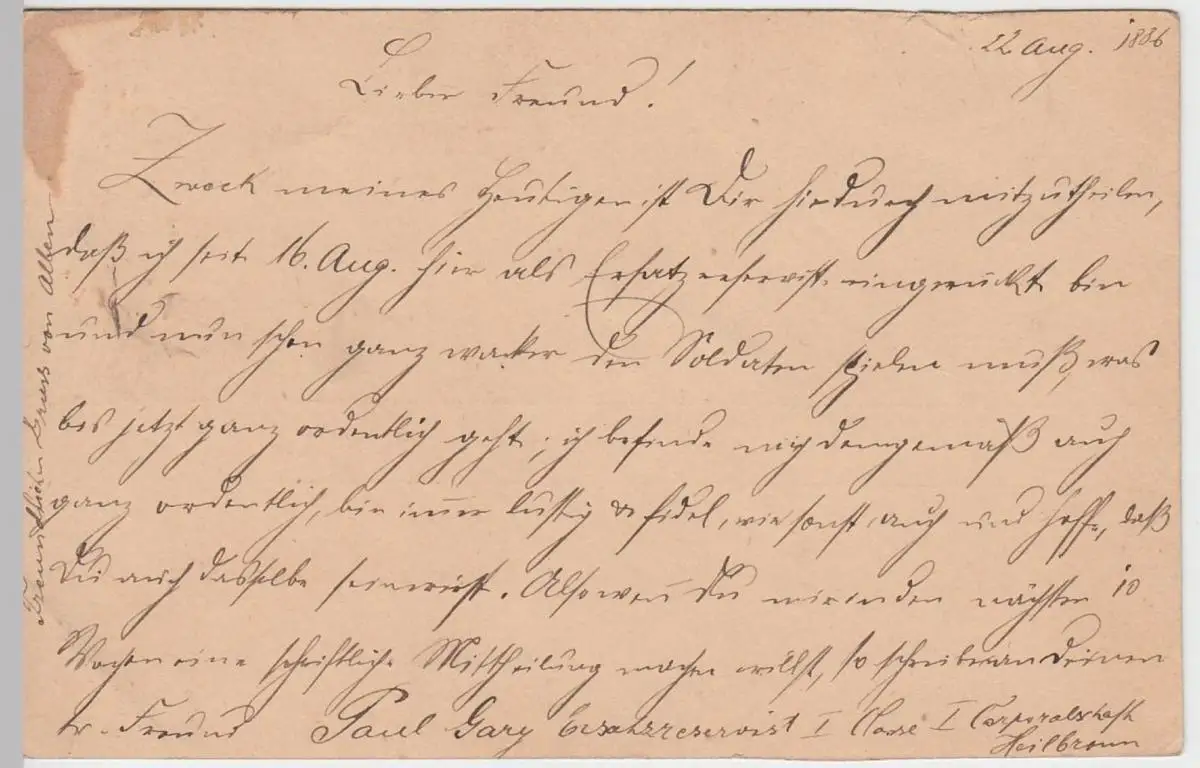 22 Aug. 1886
Lieber Freund!
Zweck meines Heutigen ist Dir hiedurch mitzutheilen,
daß ich seit 16. Aug. hier als Ersatzreservist eingerückt bin
und nun schon ganz wacker den Soldaten spielen muß, was
bis jetzt ganz ordentlich geht; ich befinde mich demgemäß auch
ganz ordentlich, bin im̅er lustig & fidel, wie sonst auch und hoffe, daß
Du auch dasselbe sein wirst. Also wen̅ Du mir in den nächsten 10
Wochen eine schriftliche Mittheilung machen willst, so schreibe an Deinen
tr. Freund Paul Gary Ersatzreservist I Classe I Corporalschaft
Heilbronn
Freundlichen Gruss von Allen